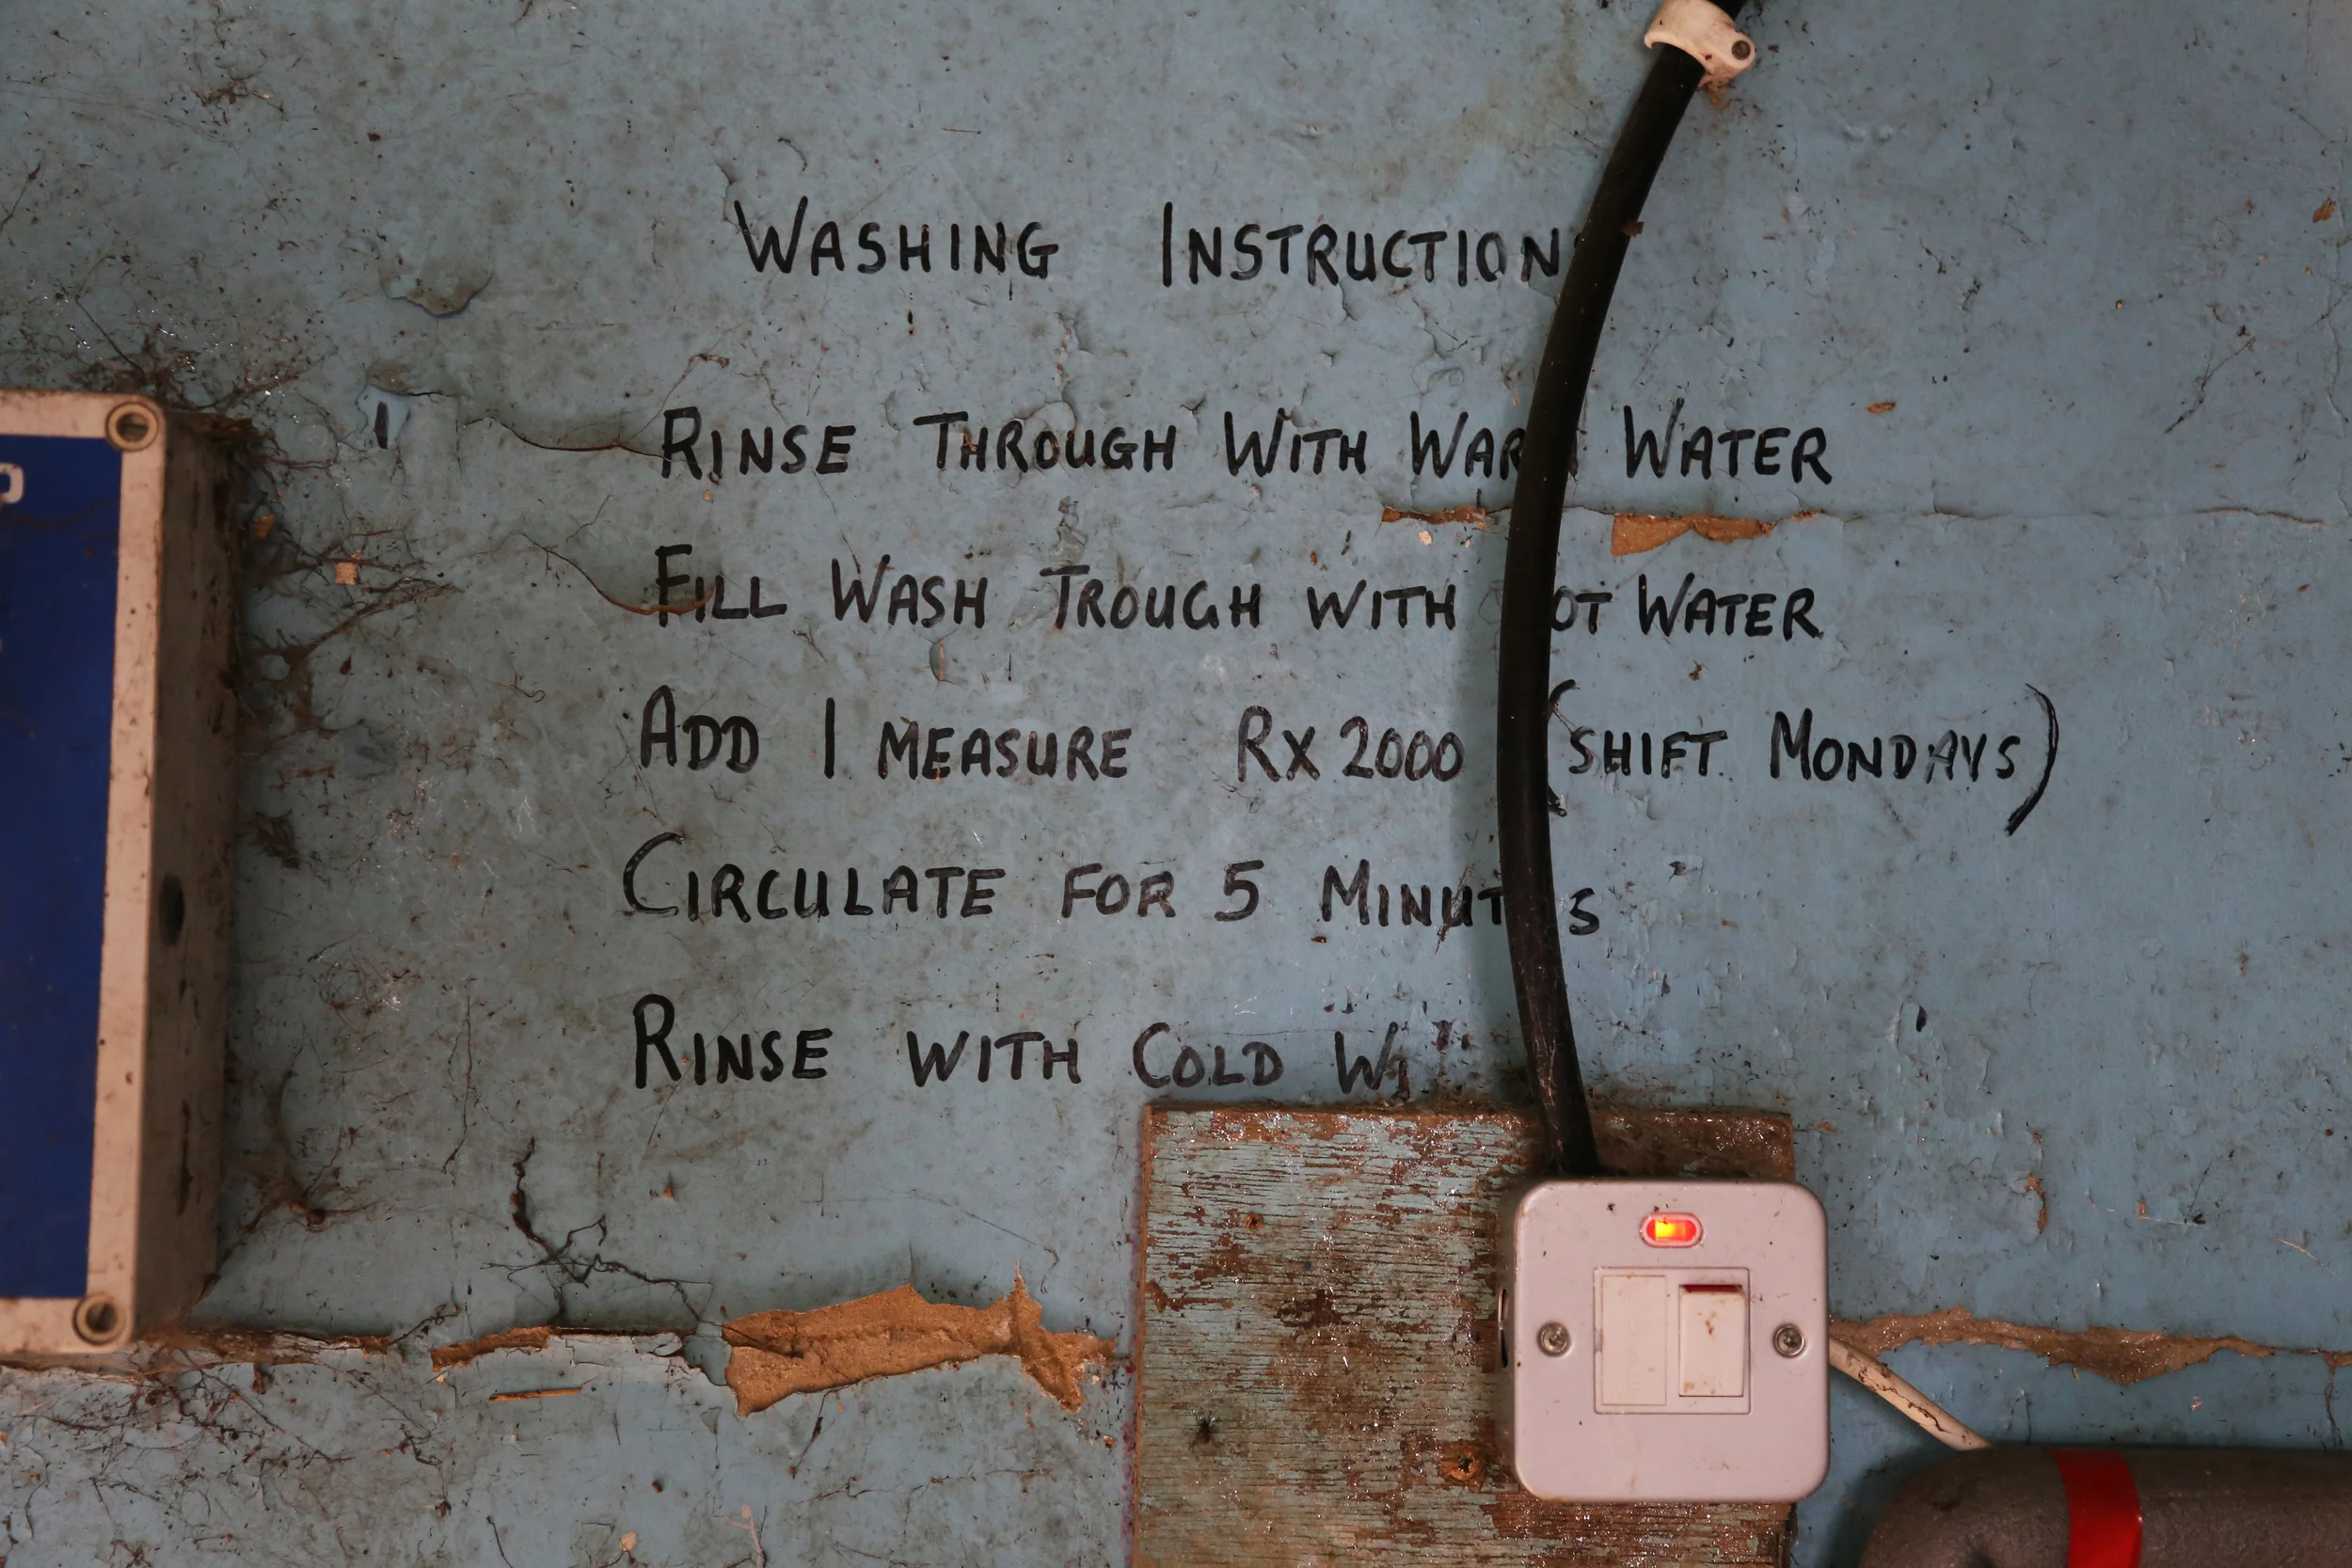 WASHING INSTRUCTION
RINSE THROUGH WITH WARM WATER
FILL WASH TROUGH WITH HOT WATER
ADD 1 MEASURE RX2000 (SHIFT MONDAYS)
CIRCULATE FOR 5 MINUTES
RINSE WITH COLD